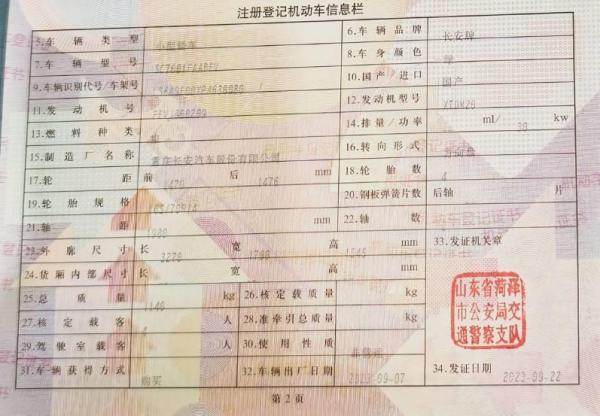 注册登记机动车信息栏
5.车辆类型 小型轿车 6.车辆品牌 长安牌
7.车辆型号 8.车身颜色 绿
9.车辆识别代号/车架号 10.国产/进口 国产
11.发动机号 12.发动机型号 XTDM20
13.燃料种类 电 14.排量/功率 ml/ 30 kw
15.制造厂名称 重庆长安汽车股份有限公司 16.转向形式 方向盘
17.轮距 前 1470 后 1476 mm 18.轮胎数 4
19.轮胎规格 20.钢板弹簧片数 后轴 片
21.轴距 1980 mm 22.轴数
23.外廓尺寸 长 3270 宽 1700 高 1545 mm 33.发证机关章
24.货厢内部尺寸 长 宽 高 mm
25.总质量 1140 kg 26.核定载质量 kg
27.核定载客 4 人 28.准牵引总质量 kg
29.驾驶室载客 人 30.使用性质 非营运
31.车辆获得方式 购买 32.车辆出厂日期 2023-09-07 34.发证日期 2023-09-22
山东省菏泽
市公安局交
通警察支队
第2页